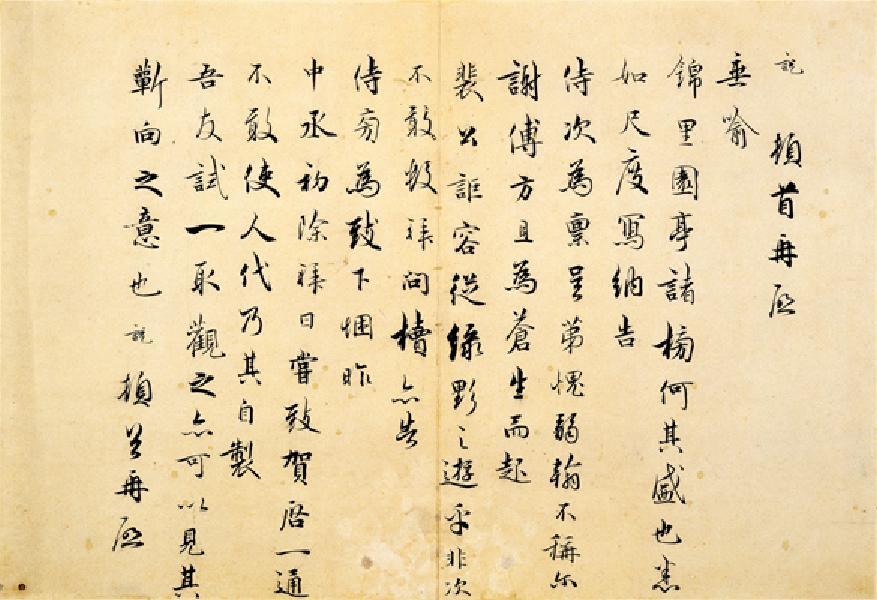 說頓首再啟
垂喻
錦里園亭諸榜何其盛也悉
如尺度寫納告
侍次為稟呈第愧弱翰不稱尔
謝傅方且為蒼生而起
裴公詎容從綠野之遊乎非次
不敢輒拜問楮亦告
侍旁為致下悃昨
中丞初除拜日嘗致賀啓一通
不敢使人代乃其自製
吾友試一取觀之亦可以見其
蘄向之意也說頓首再啟